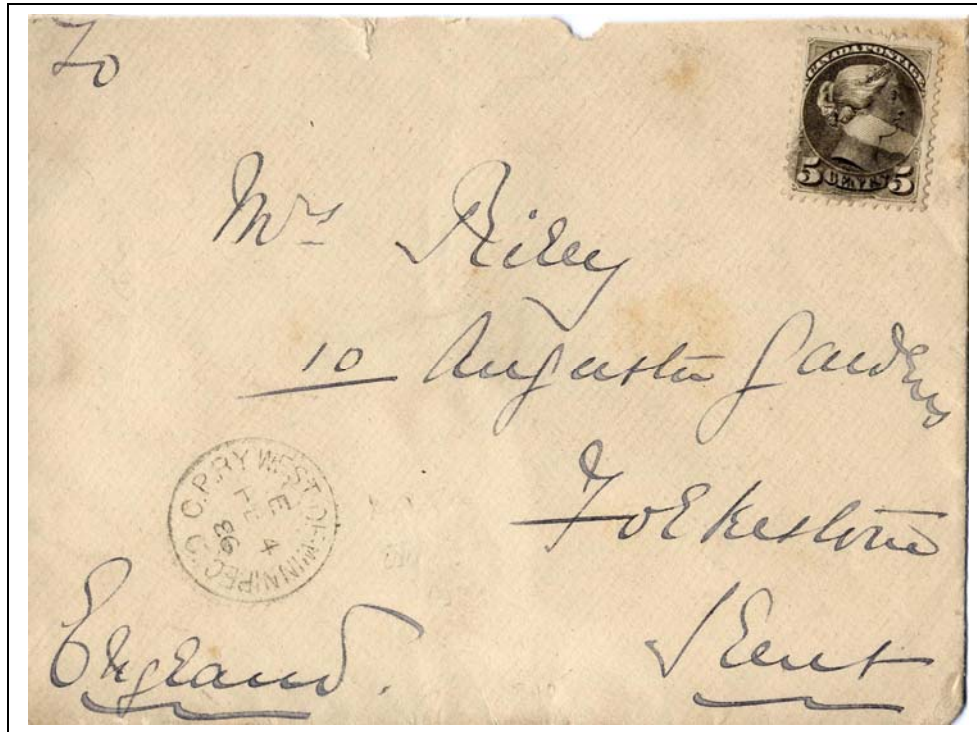 To
CANADA POSTAGE
5 CENTS 5
Mrs Riley
10 Augusta Gardens
Folkestone
Kent
England.
C.P.RY WEST OF WINNIPEG
E
FE 4